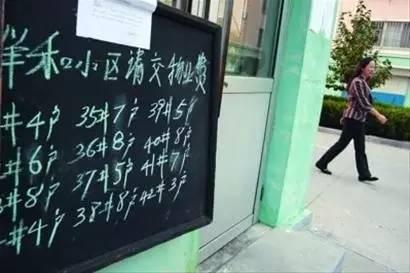 祥和小区请交物业费
#4户 35#7户 39#5户
#6户 36#8户 40#8户
#8户 37#5户 41#7户
#4户 38#8户 42#3户